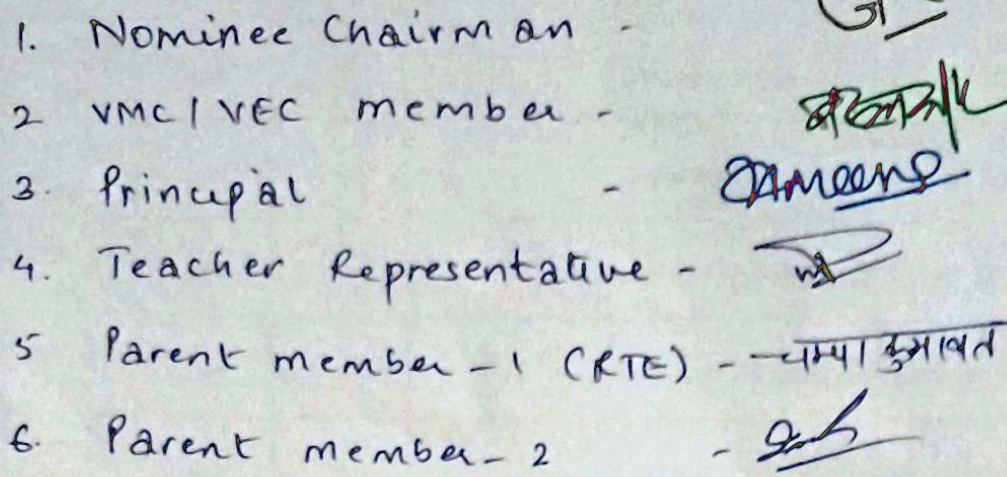 1. Nominee Chairman -
2 VMC / VEC member -
3. Principal - Meena
4. Teacher Representative -
5 Parent member - 1 (RTE) - चम्पा कुमावत
6. Parent member - 2 -